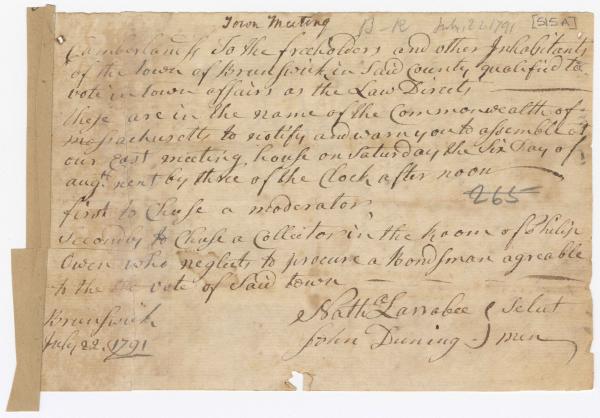 Town Meeting B-R July 22 1791 [515A]
Cumberland ss To the freeholders and other Inhabitants
of the town of Brunswick in Said County qualified to
vote in town affairs as the Law Directs
these are in the name of the Commonwealth of
massachusetts to notify and warn you to assemble at
our East meeting house on Saturday the Six Day of
augt. next by three of the Clock after noon
265
first to Chuse a moderator
Secondly to Chuse a Collector in the Room of Philip
Owen who neglects to procure a Bondsman agreable
to the vote of Said town
Brunswick
July 22. 1791
Nathl. Larrabee } Select
John Duning } men